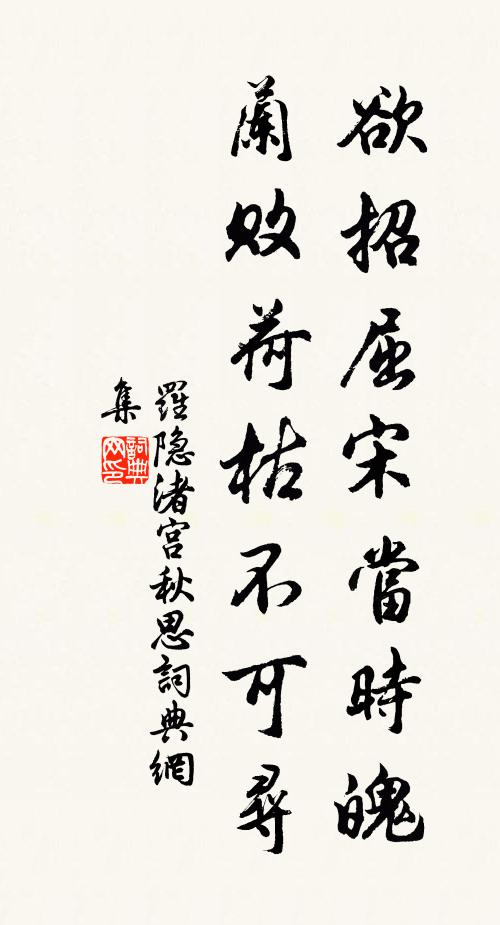 欲招屈宋當時魄
蘭敗荷枯不可尋
羅隐渚宫秋思詞典網
集
詞典网印